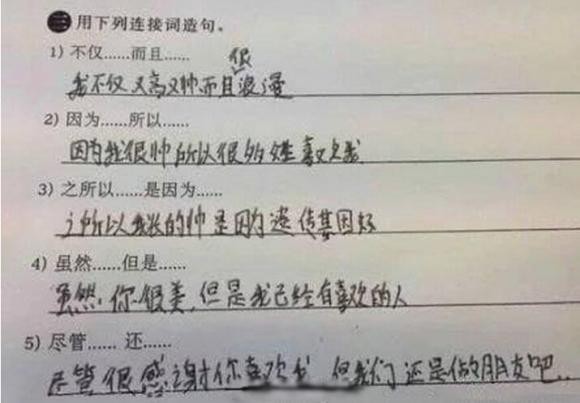 三 用下列连接词造句。
1) 不仅……而且……
我不仅又高又帅而且很浪漫
2) 因为……所以……
因为我很帅所以很多女生喜欢我
3) 之所以……是因为……
之所以我长的帅是因为遗传基因好
4) 虽然……但是……
虽然你很美,但是我已经有喜欢的人
5) 尽管…… 还……
尽管很感谢你喜欢我 但我们还是做朋友吧..